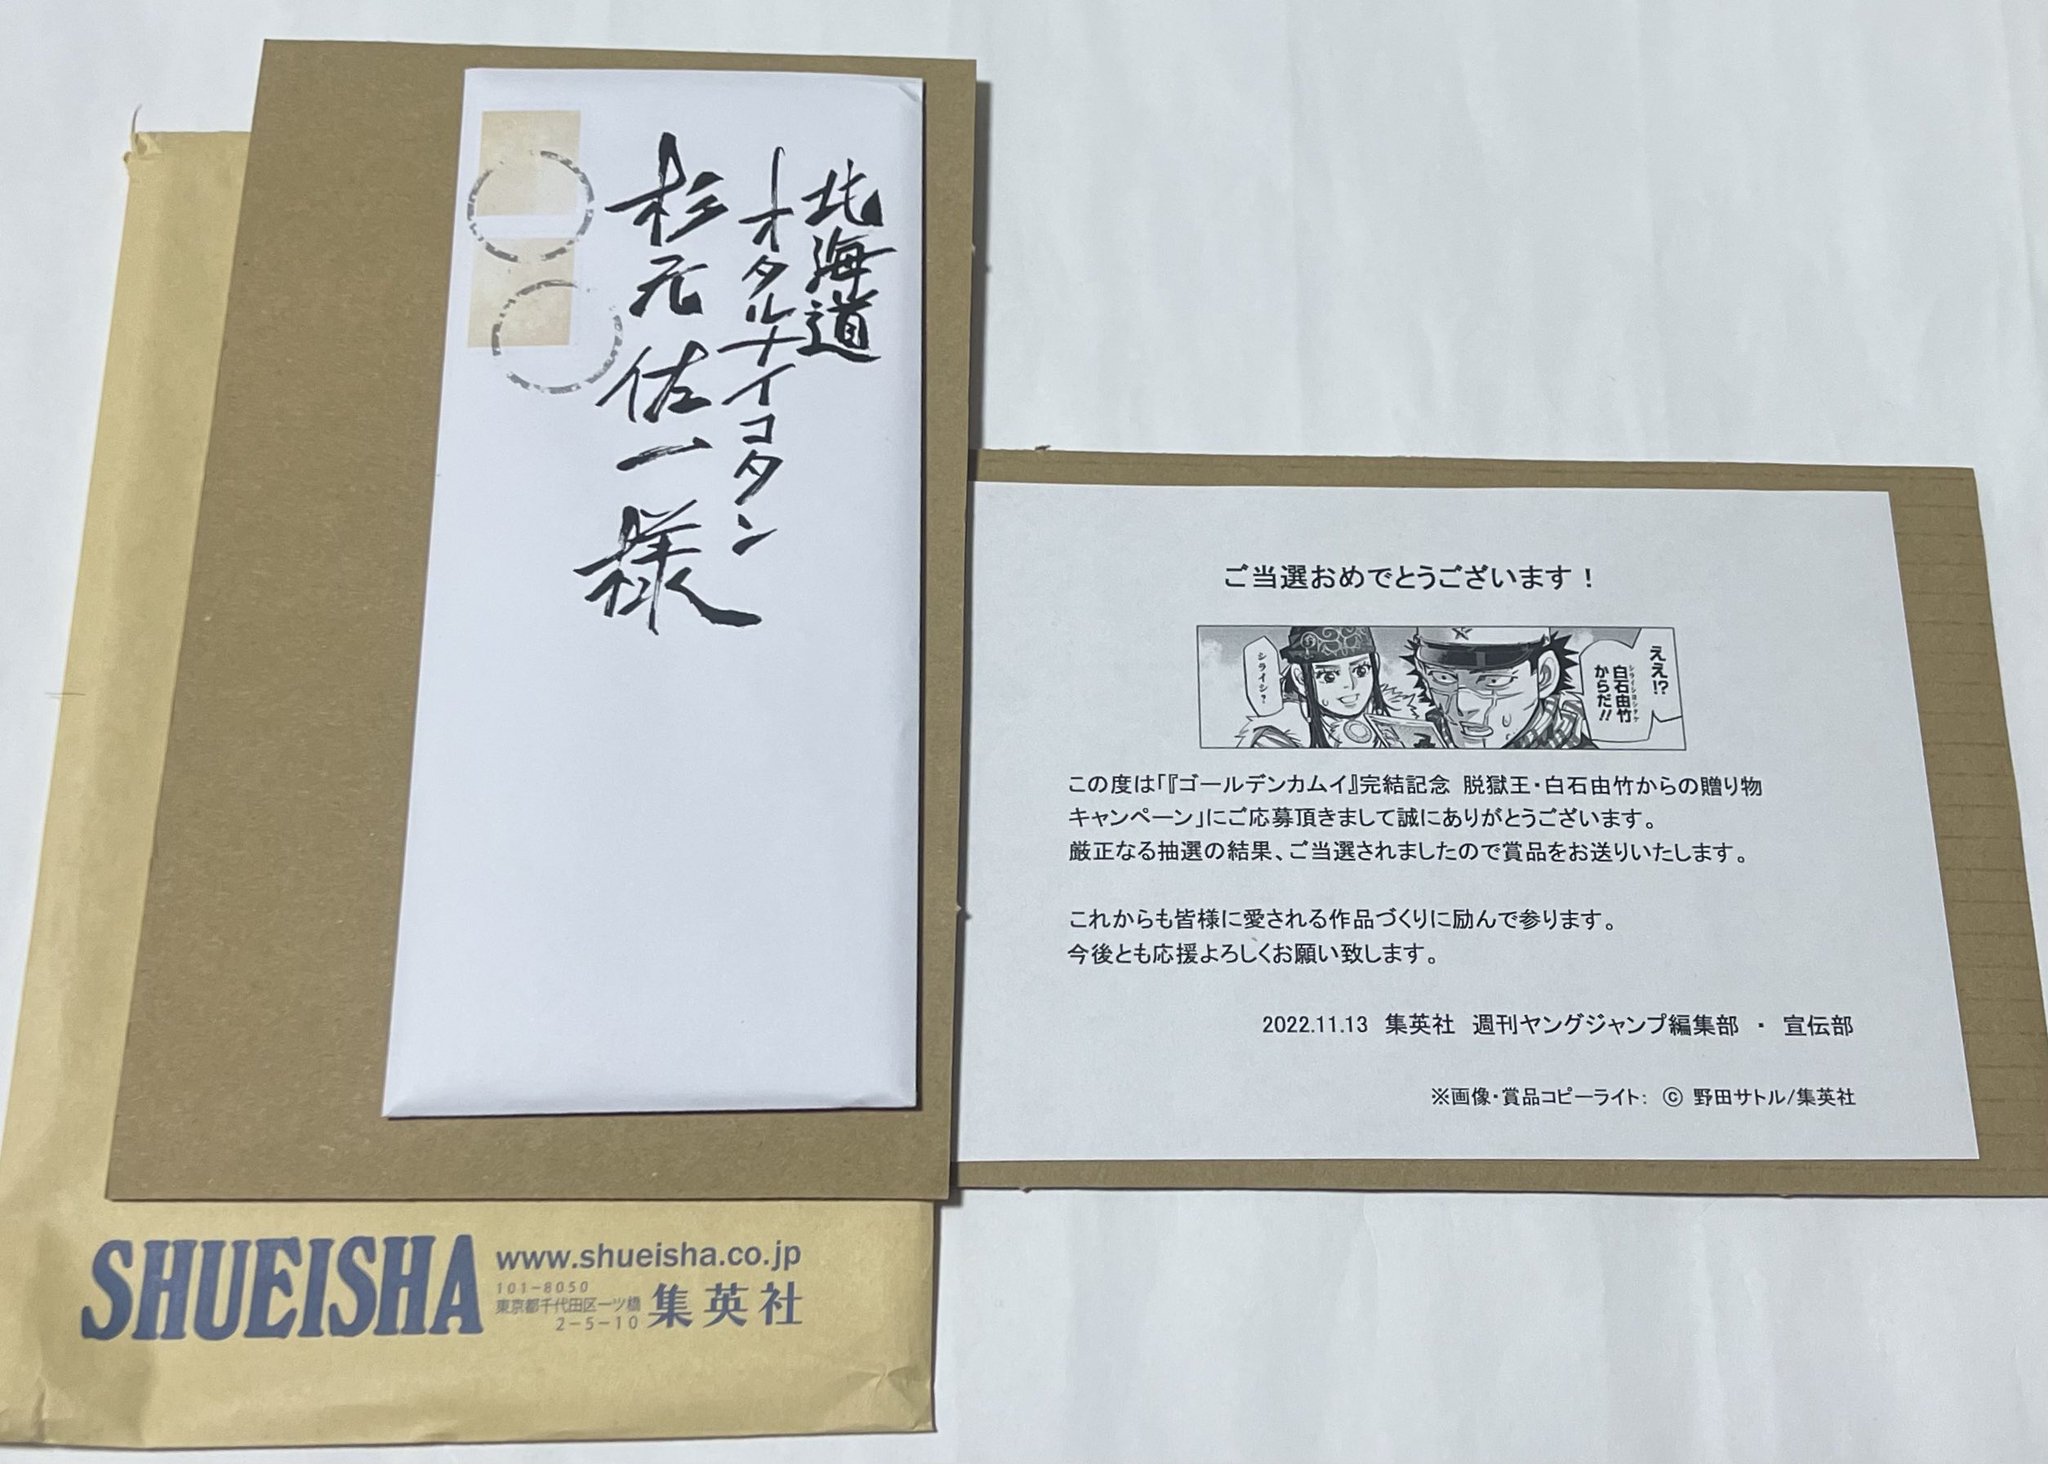 北海道
オタルナイコタン
杉元佐一様
ご当選おめでとうございます！
ええ!?
白石由竹
シライシヨシタケ
からだ!!
シライシ？
この度は「『ゴールデンカムイ』完結記念 脱獄王・白石由竹からの贈り物
キャンペーン」にご応募頂きまして誠にありがとうございます。
厳正なる抽選の結果、ご当選されましたので賞品をお送りいたします。
これからも皆様に愛される作品づくりに励んで参ります。
今後とも応援よろしくお願い致します。
2022.11.13 集英社 週刊ヤングジャンプ編集部 ・ 宣伝部
※画像・賞品コピーライト： ⓒ 野田サトル/集英社
SHUEISHA
www.shueisha.co.jp
101-8050
東京都千代田区一ツ橋
2-5-10
集英社